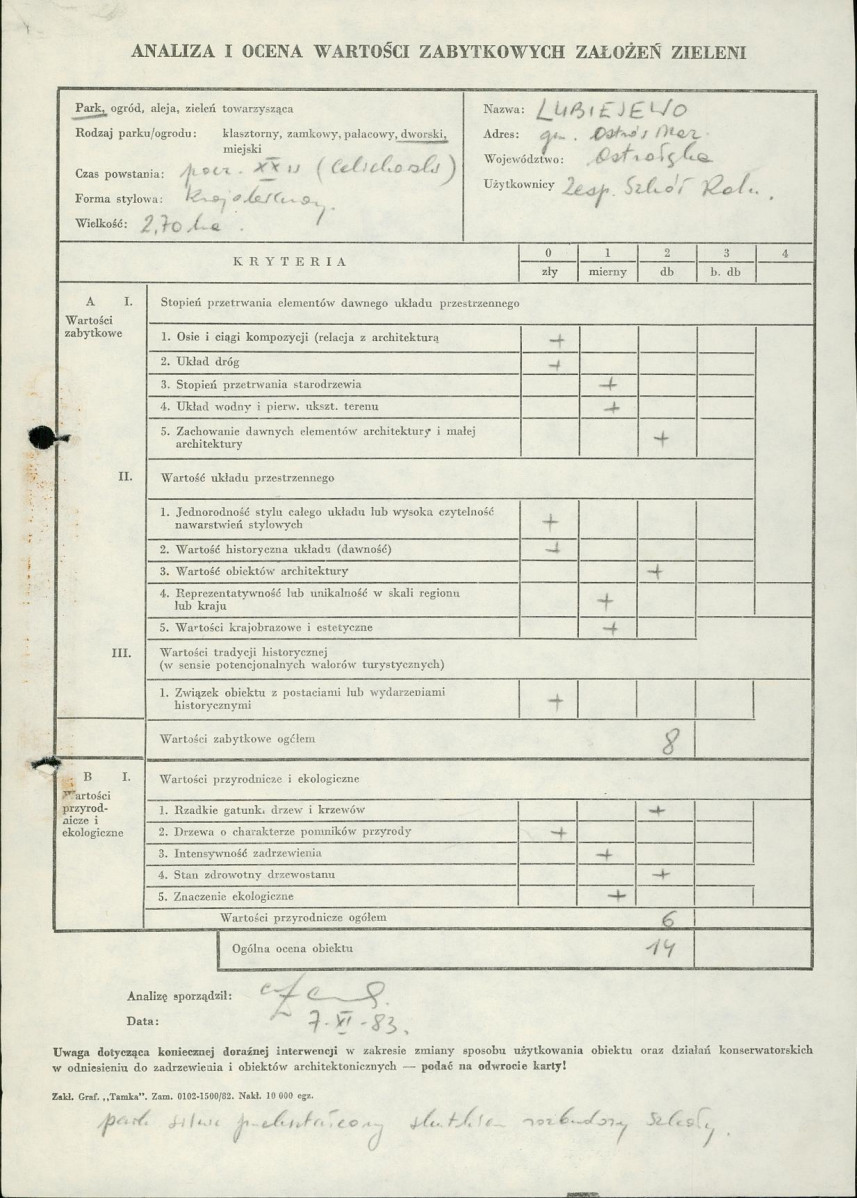 ANALIZA I OCENA WARTOŚCI ZABYTKOWYCH ZAŁOŻEŃ ZIELENI
Park, ogród, aleja, zieleń towarzysząca
Rodzaj parku/ogrodu: klasztorny, zamkowy, pałacowy, dworski,
miejski
Czas powstania: pocz. XX w
Forma stylowa: Krajobrazowy.
Wielkość: 2,70 ha.
Nazwa: LUBIEJEWO
Adres: gm. Ostrów Maz.
Województwo: Ostrołęka
Użytkownicy Zesp. Szkół Roln.
KRYTERIA
0 1 2 3 4
zły mierny db b. db
A I. Stopień przetrwania elementów dawnego układu przestrzennego
Wartości
zabytkowe
1. Osie i ciągi kompozycji (relacja z architekturą +
2. Układ dróg +
3. Stopień przetrwania starodrzewia +
4. Układ wodny i pierw. ukszt. terenu +
5. Zachowanie dawnych elementów architektury i małej
architektury +
II. Wartość układu przestrzennego
1. Jednorodność stylu całego układu lub wysoka czytelność
nawarstwień stylowych +
2. Wartość historyczna układu (dawność) +
3. Wartość obiektów architektury +
4. Reprezentatywność lub unikalność w skali regionu
lub kraju +
5. Wartości krajobrazowe i estetyczne +
III. Wartości tradycji historycznej
(w sensie potencjonalnych walorów turystycznych)
1. Związek obiektu z postaciami lub wydarzeniami
historycznymi +
Wartości zabytkowe ogółem 8
B I. Wartości przyrodnicze i ekologiczne
Wartości
przyrod-
nicze i
ekologiczne
1. Rzadkie gatunki drzew i krzewów +
2. Drzewa o charakterze pomników przyrody +
3. Intensywność zadrzewienia +
4. Stan zdrowotny drzewostanu +
5. Znaczenie ekologiczne +
Wartości przyrodnicze ogółem 6
Ogólna ocena obiektu 14
Analizę sporządził:
Data: 7-XI-83.
Uwaga dotycząca koniecznej doraźnej interwencji w zakresie zmiany sposobu użytkowania obiektu oraz działań konserwatorskich
w odniesieniu do zadrzewienia i obiektów architektonicznych — podać na odwrocie karty!
Zakł. Graf. „Tamka". Zam. 0102-1500/82. Nakł. 10 000 egz.
park silnie przekształcony skutkiem rozbudowy szkoły.